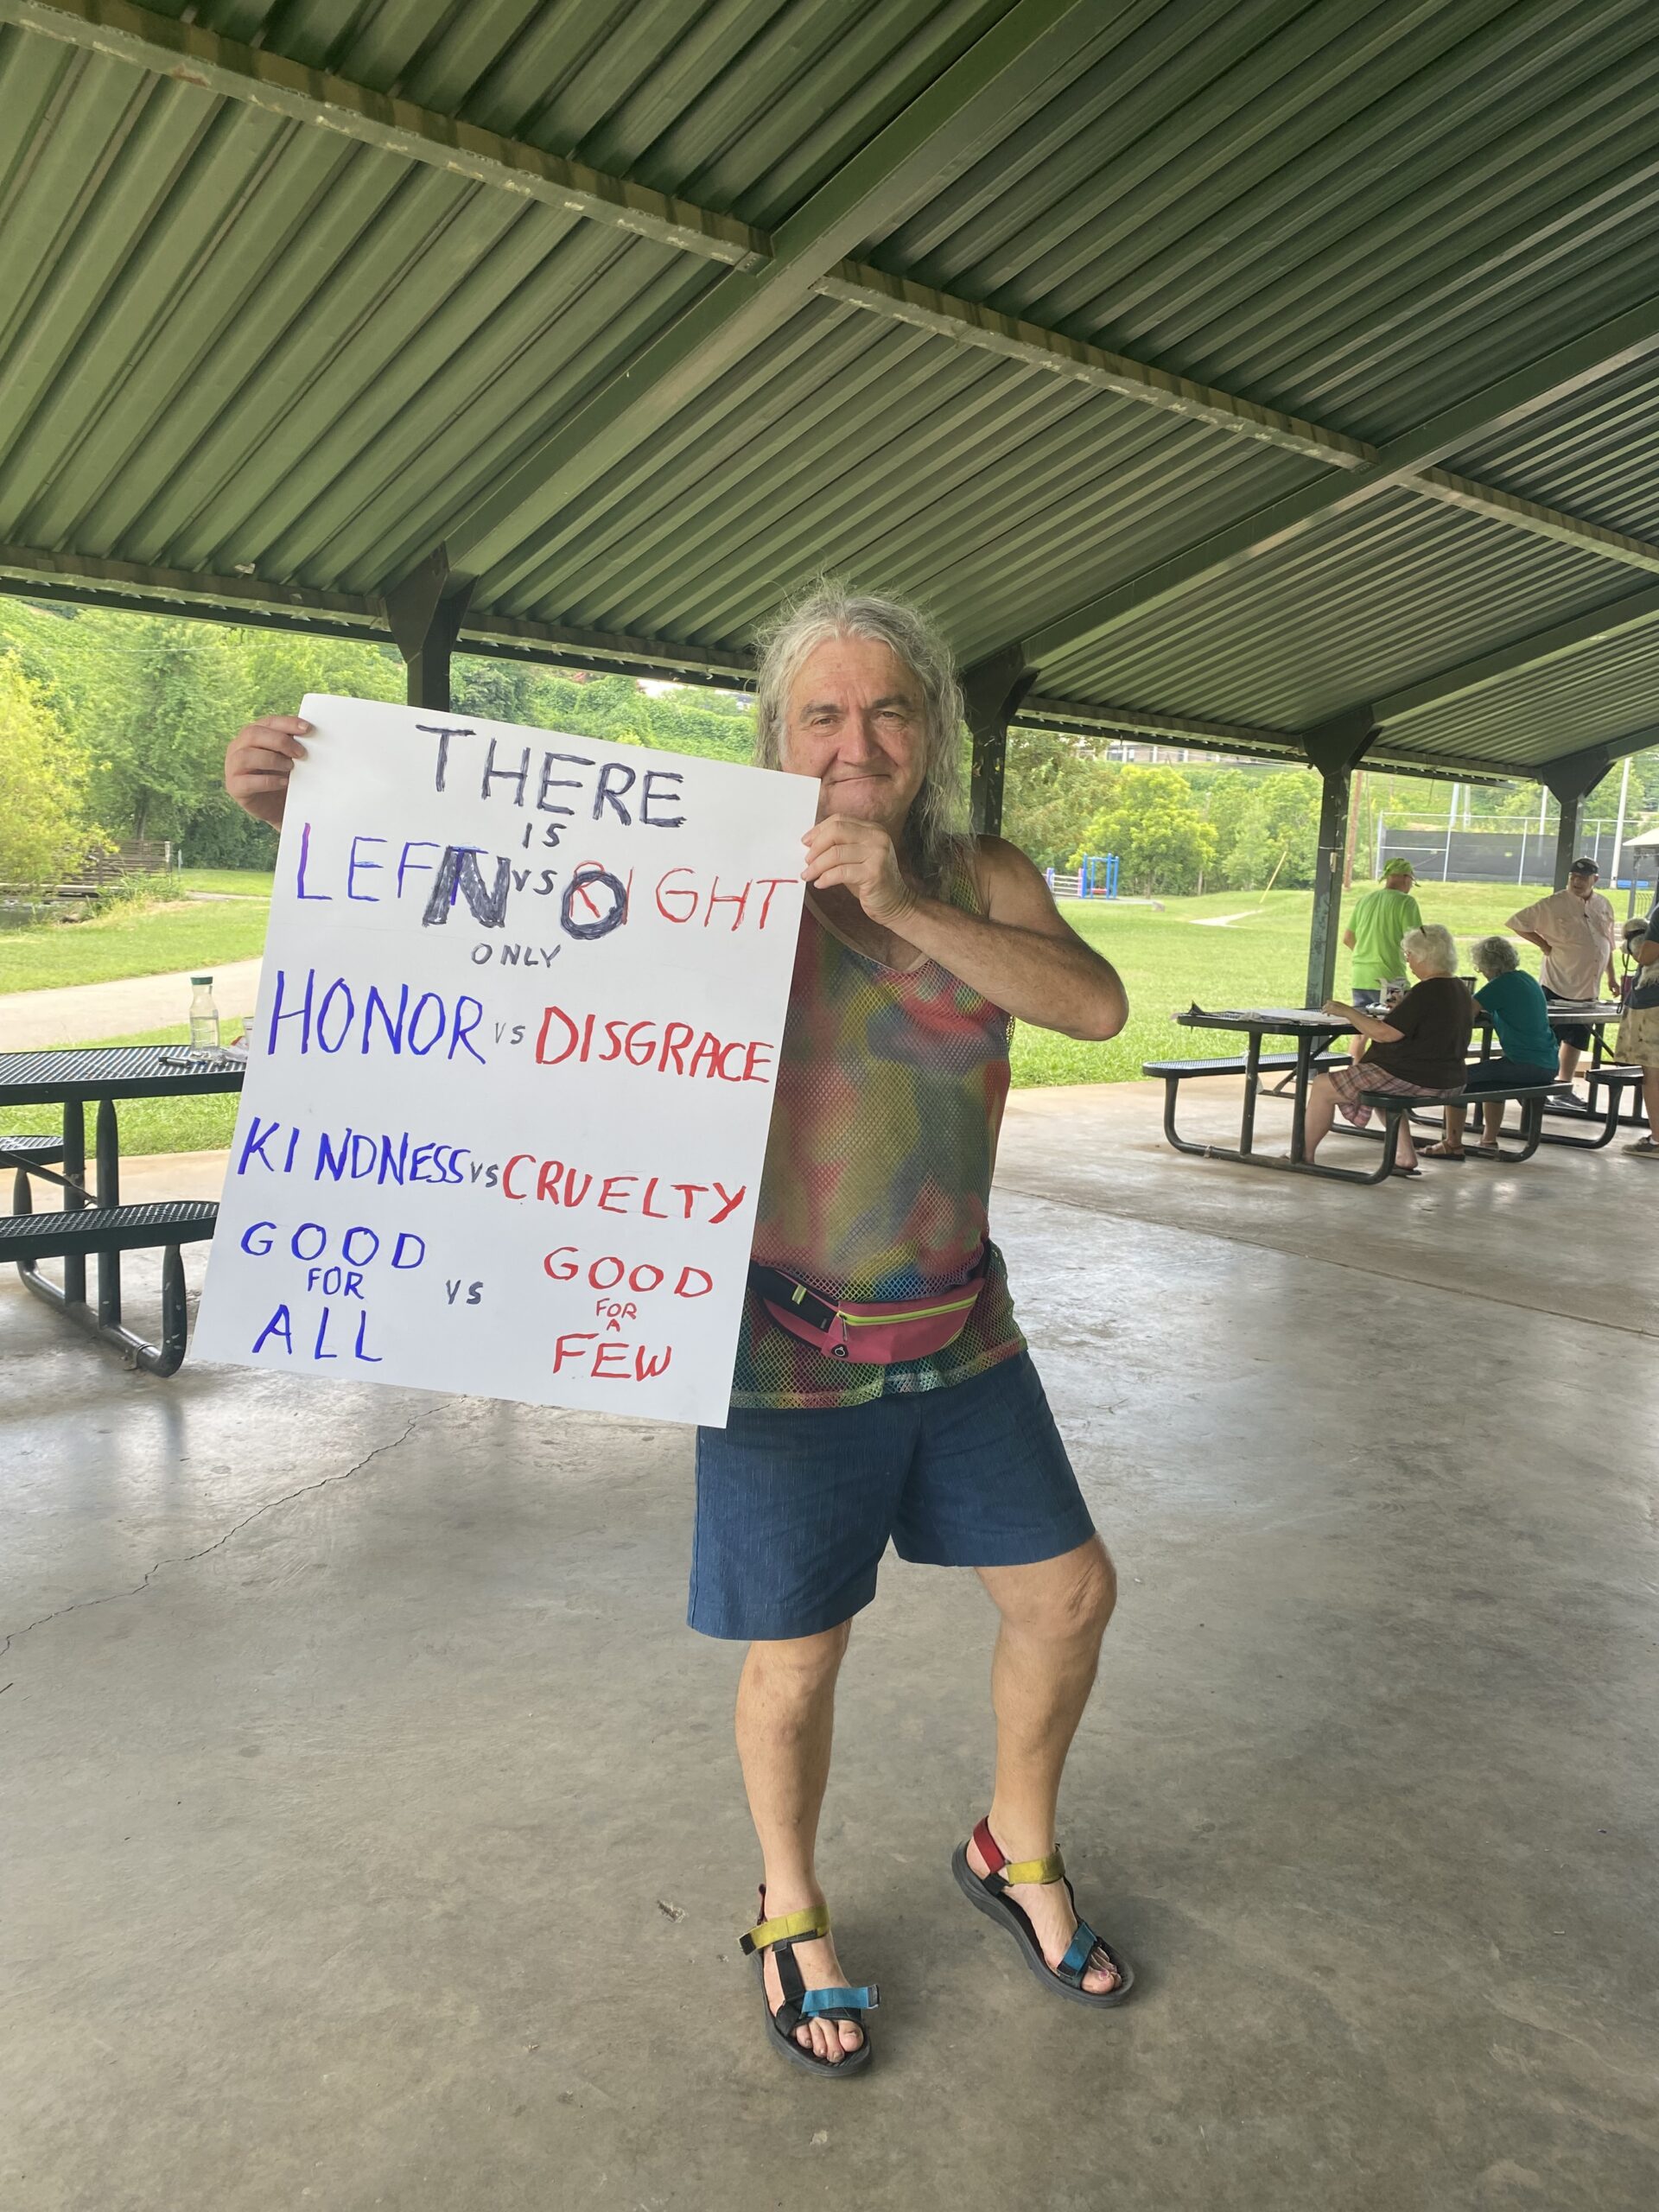 THERE
IS
LEFT VS RIGHT
NO
ONLY
HONOR VS DISGRACE
KINDNESS VS CRUELTY
GOOD FOR ALL VS GOOD FOR A FEW